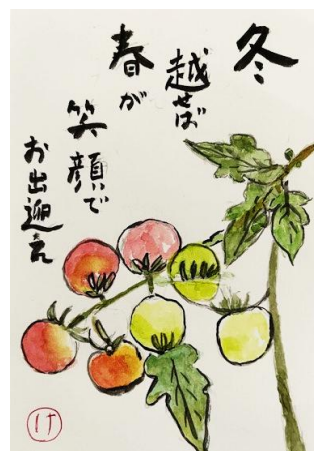 冬
越せば
春が
笑顔で
お出迎え
け